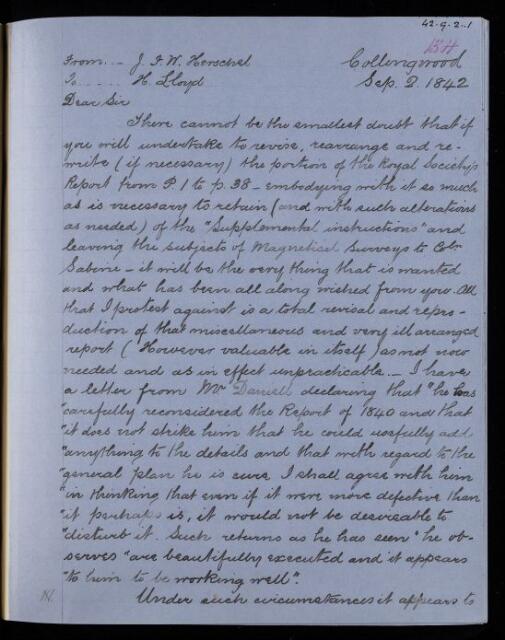 42-9-2-1
From... J. F. W. Herschel
Collingwood
To..... H. Lloyd
Sep. 2. 1842
Dear Sir
There cannot be the smallest doubt that if
you will undertake to revise, rearrange and re-
write (if necessary) the portion of the Royal Society's
Report from P. 1 to p. 38 - embodying with it so much
as is necessary to retain (and with such alterations
as needed) of the "Supplemental instructions" and
leaving the subjects of Magnetical Surveys to Col.
Sabine - it will be the very thing that is wanted
and what has been all along wished from you. All
that I protest against is a total revisal and repro-
duction of that miscellaneous and very ill arranged
report (However valuable in itself) as not now
needed and as in effect unpracticable. - I have
a letter from Mr Daniell declaring that "he has
"carefully reconsidered the Report of 1840 and that
"it does not strike him that he could usefully add
"anything to the details and that with regard to the
"general plan he is sure I shall agree with him
"in thinking that even if it were more defective than
"it perhaps is, it would not be desireable to
"disturb it. Such returns as he has seen" he ob-
serves "are beautifully executed and it appears
"to him to be working well".
Under such circumstances it appears to